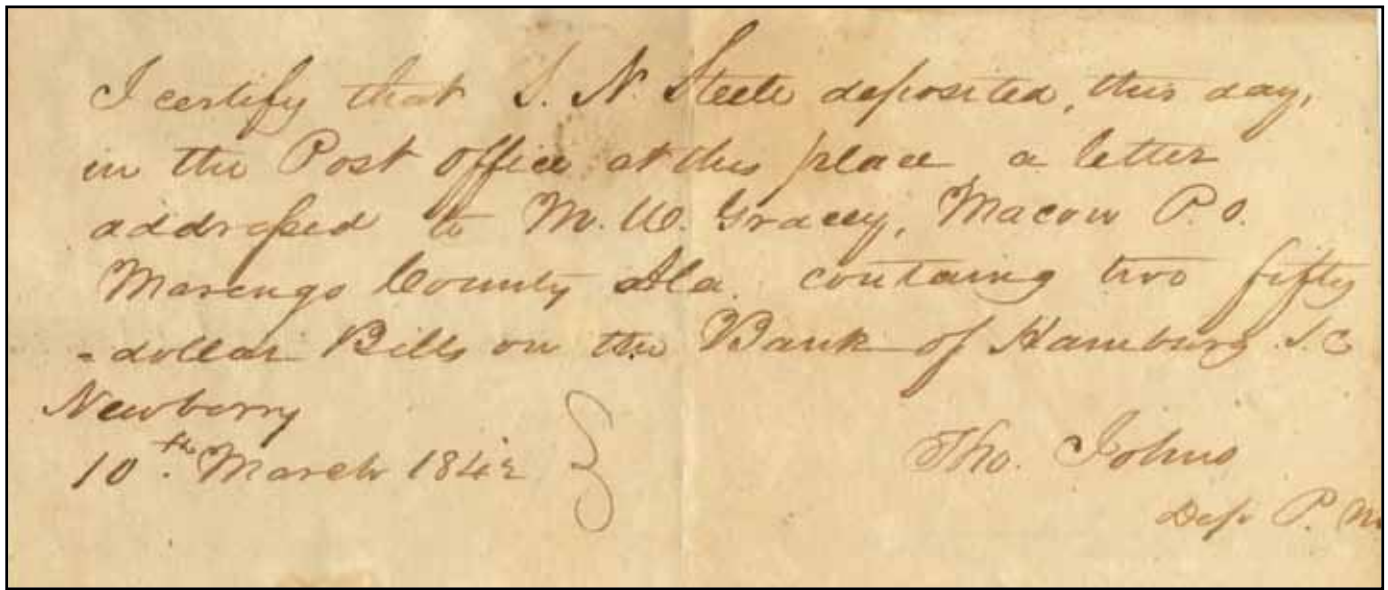 I certify that S. N. Steele deposited, this day,
in the Post Office at this place a letter
addressed to M. W. Gracey, Macon P.O.
Marengo County Ala. containg two fifty
-dollar Bills on the Bank of Hamburg S.C
Newberry
10th. March 1842
Tho. Johns
Dep P. M